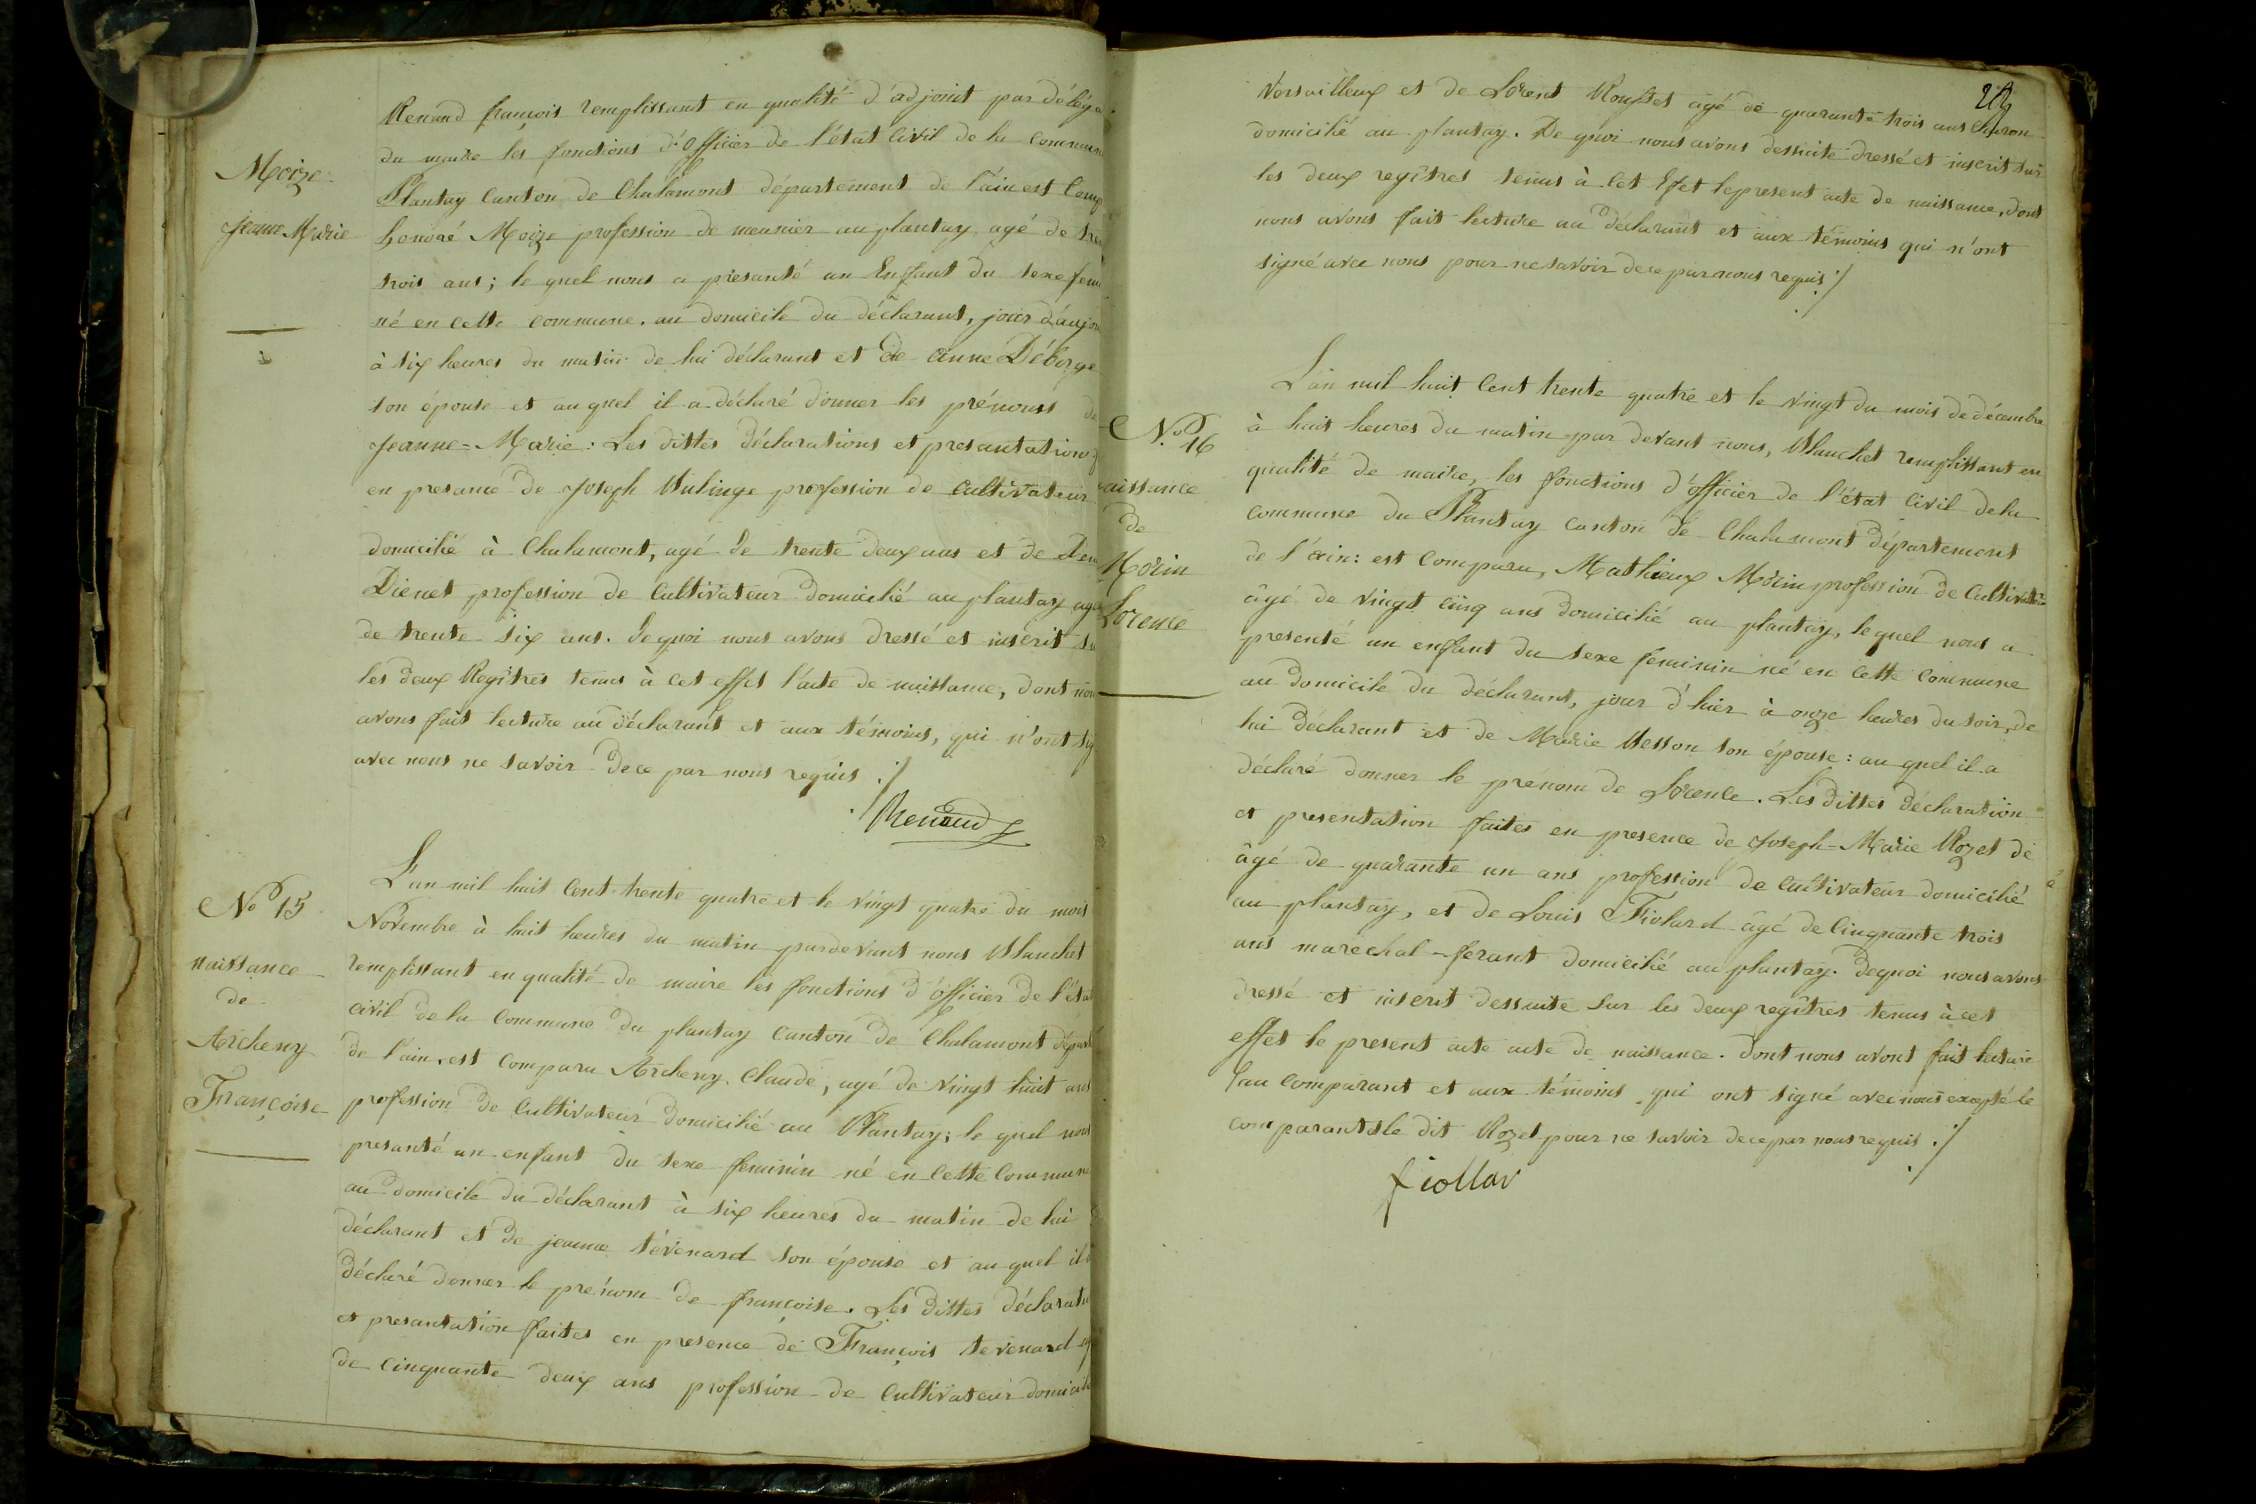 Moize
Jeanne Marie
Renand françois remplissant en qualité d'adjoint par délég
du maire les fonctions d'Officier de l'état Civil de la commun
Plantay Canton de Chalamont département de l'ain est Comp
honoré Moize profession de meunier au plantay agé de tre
trois ans; le quel nous a présanté un Enfant du sexe fem
né en cette commune. au domicile du déclarant, jour d'aujou
à six heures du matin de lui déclarant et de anne Déborge
son épouse et auquel il a déclaré donner les prénoms de
Jeanne-Marie: Les dittes déclarations et presantation
en presance de Joseph profession de cultivateur
domicilié à Chalamont, agé de trente deux ans et de
Dienet profession de Cultivateur domicilié au plantay agé
de trente six ans. de quoi nous avons dressé et inscrit su
les deux Regîtres tenus à cet effet l'acte de naissance, dont nou
avons fait lecture au déclarant et aux témoins, qui n'ont sig
avec nous ne savoir de ce par nous requis ./
Renaud
No 15
naissance
de
Archeny
Françoise
L'an mil huit Cent trente quatre et le vingt quatre du mois
Novembre à huit heures du matin pardevant nous Blanchet
remplissant en qualité de maire les fonctions d'officier de l'éta
civil de la Commune du plantay canton de Chalamont départ
de l'ain, est comparu Archeny Claude, agé de vingt huit ans
profession de Cultivateur domicilié au Plantay; le quel nous
presanté un enfant du sexe féminin né en Cette Commune
au domicile du déclarant à six heures du matin de lui
déclarant et de jeanne tévenard son épouse et au quel il
déclaré donner le prénom de françoise. Les dittes déclaratio
et presantation faites en presence de François tevenard
de cinquante deux ans profession de Cultivateur domicilié
24
Versailleux et de Lorent Rousset âgé de quarante trois ans Charon
domicilié au plantay. De quoi nous avons dessuite dressé et inscrit sur
les deux regîtres tenus à Cet Effet le present acte de naissance, dont
nous avons fait lecture au déclarant et aux témoins qui n'ont
signé avec nous pour ne savoir de ce par nous requis ./
No 16
aissance
de
Morin
Lorence
L'an mil huit Cent trente quatre et le vingt du mois de décembre
à huit heures du matin par devant nous, Blanchet remplissant en
qualité de maire, les fonctions d'officier de l'état Civil de la
commune du Plantay canton de Chalamont département
de l'ain: est Comparu, Mathieux Morin profession de Cultivateur
âgé de vingt cinq ans domicilié au plantay, lequel nous a
presenté un enfant du sexe féminin né en Cette Commune
au domicile du déclarant, jour d'hier à onze heures du soir, de
lui déclarant et de Marie Besson son épouse: au quel il a
déclaré donner le prénom de Lorence. Les dittes déclaration
et presentation faites en presence de Joseph-Marie Rozet de
âgé de quarante un ans profession de cultivateur domicilié
au plantay, et de Louis Fiolard âgé de Cinquante trois
ans maréchal-ferant domicilié au plantay. de quoi nous avons
dressé et inscrit dessuite sur les deux regîtres tenus à cet
effet le present acte acte de naissance. dont nous avons fait lecture
au Comparant et aux témoins qui ont signé avec nous excepté le
comparant et le dit Rozet pour ne savoir de ce par nous requis ./
fiollar